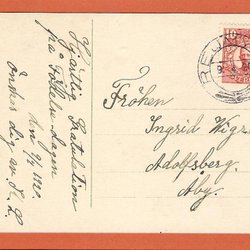 Hjärtlig Gratulation
på Födelse-dagen
den 9/5 1920.
Önskar dig av S. L.
10
Fröken
Ingrid Wigr
Adolfsberg.
Åby.